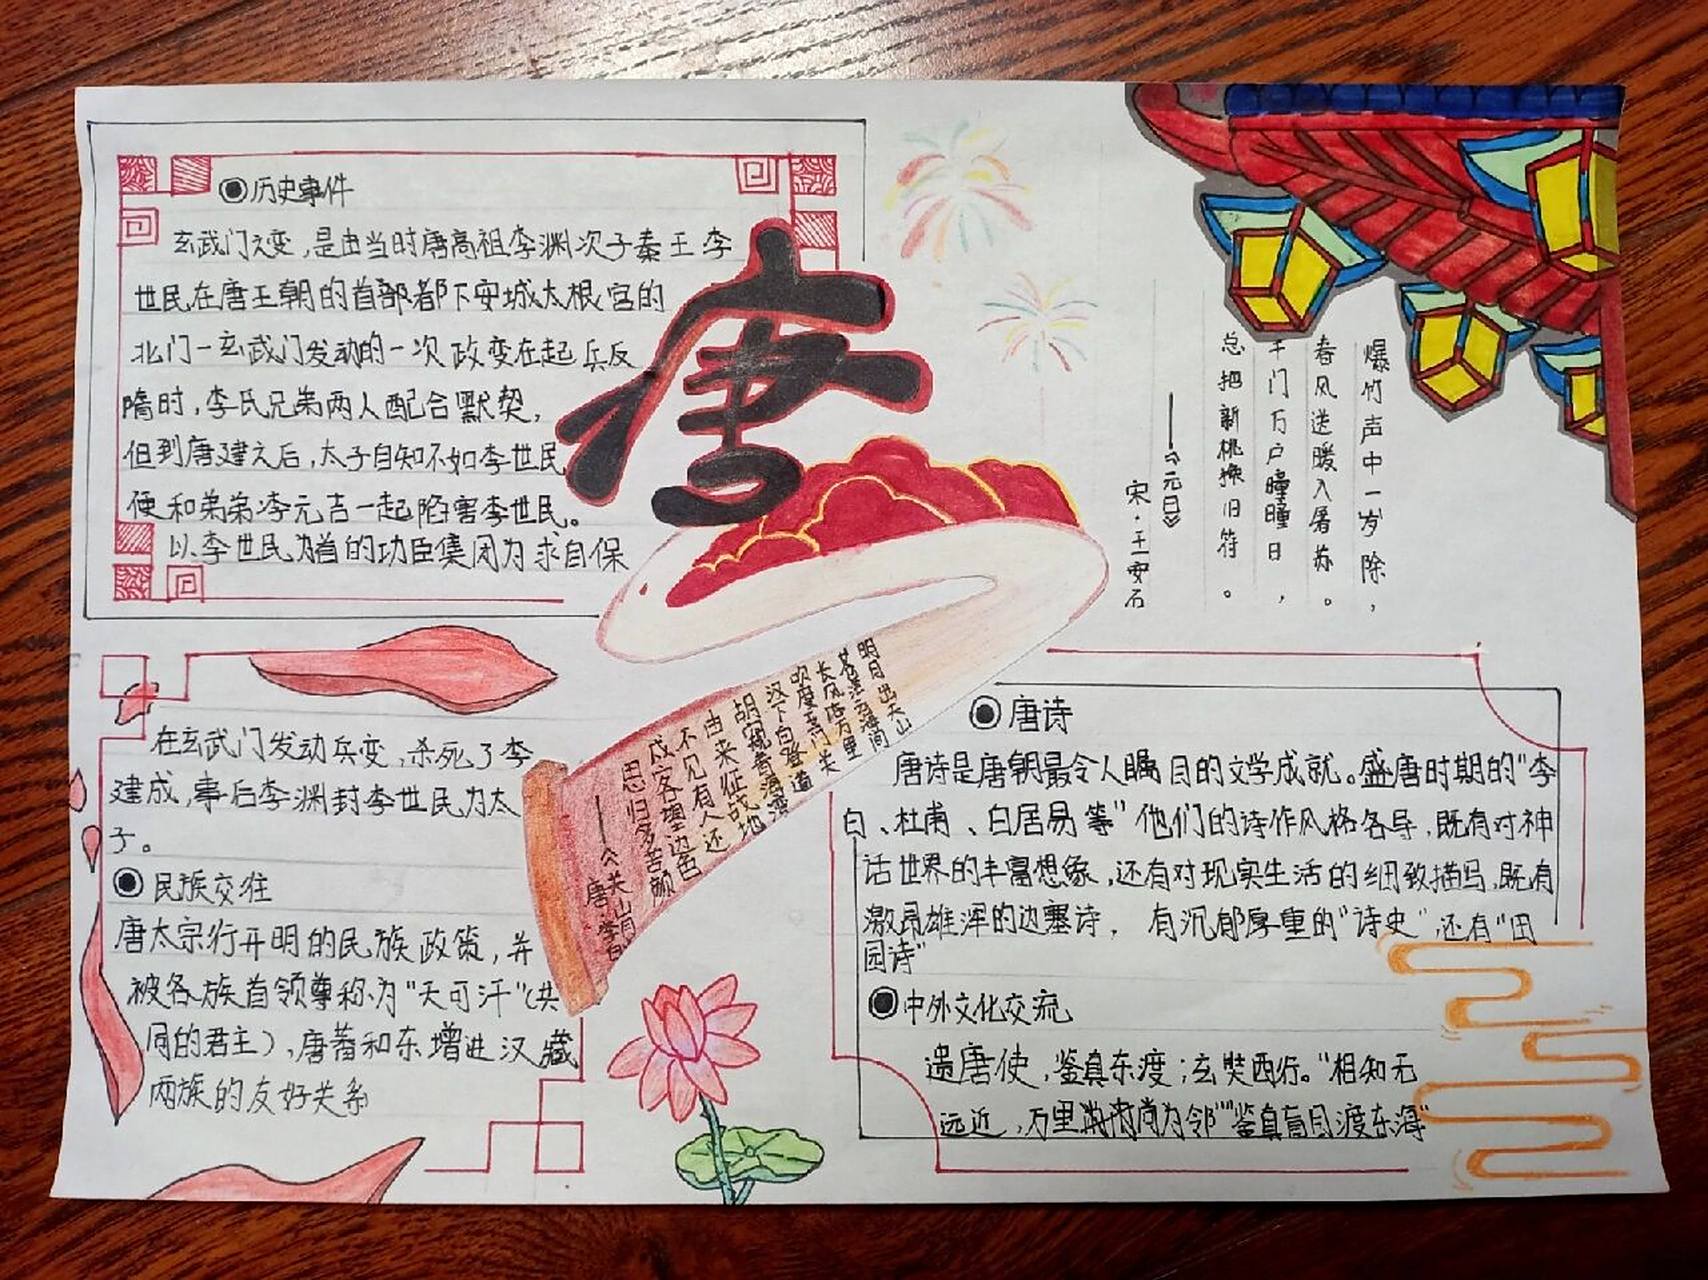 历史事件
玄武门之变,是由当时唐高祖李渊次子秦王李
世民在唐王朝的首部都下安城太根宫的
北门一玄武门发动的一次政变在起兵反
隋时,李氏兄弟两人配合默契,
但到唐建立后,太子自知不如李世民
便和弟弟李元吉一起陷害李世民。
以李世民为首的功臣集团为求自保
在玄武门发动兵变,杀死了李
建成,事后李渊封李世民为太
子。
民族交往
唐太宗行开明的民族政策,并
被各族首领尊称为“天可汗”(共
同的君主),唐蕃和东增进汉藏
两族的友好关系
唐
明月出天山
苍茫云海间
长风几万里
吹度玉门关
汉下白登道
胡窥青海湾
由来征战地
不见有人还
戍客望边色
思归多苦颜
——《关山月》
唐·李白
爆竹声中一岁除,
春风送暖入屠苏。
千门万户曈曈日,
总把新桃换旧符。
——《元日》
宋·王安石
唐诗
唐诗是唐朝最令人瞩目的文学成就。盛唐时期的“李
白、杜甫、白居易等”他们的诗作风格各导,既有对神
话世界的丰富想象,还有对现实生活的细致描写,既有
激昂雄浑的边塞诗, 有沉郁厚重的“诗史”还有“田
园诗”
中外文化交流
遣唐使,鉴真东渡;玄奘西行。“相知无
远近,万里尚为邻”“鉴真盲目渡东海”